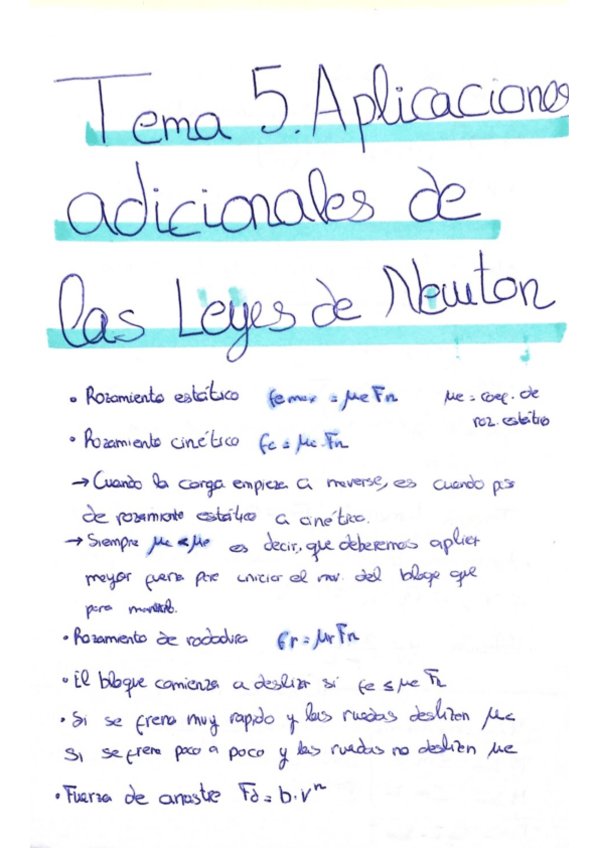 Tema 5. Aplicaciones
adicionales de
las Leyes de Newton
• Rozamiento estático femax = μe Fn μe = coef. de
roz. estático
• Rozamiento cinético fc = μc · Fn
→ Cuando la carga empieza a moverse, es cuando pasa
de rozamiento estático a cinético.
→ Siempre μc < μe es decir, que deberemos aplicar
mayor fuerza para iniciar el mov. del bloque que
para
• Rozamiento de rodadura fr = μr Fn
• El bloque comienza a deslizar si fe ≤ μe Fn
• Si se frena muy rapido y las ruedas deslizan μc
Si se frena poco a poco y las ruedas no deslizan μe
• Fuerza de arrastre Fd = b · vⁿ